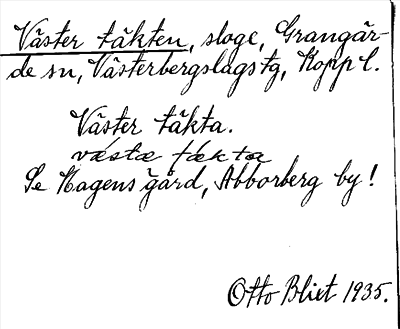 Väster täkten, sloge, Grangär-
de sn, Västerbergslags tg, Kopp l.
Väster täkta.
västæ tækta
Se Hagens gård, Abborberg by!
Otto Blixt 1935.